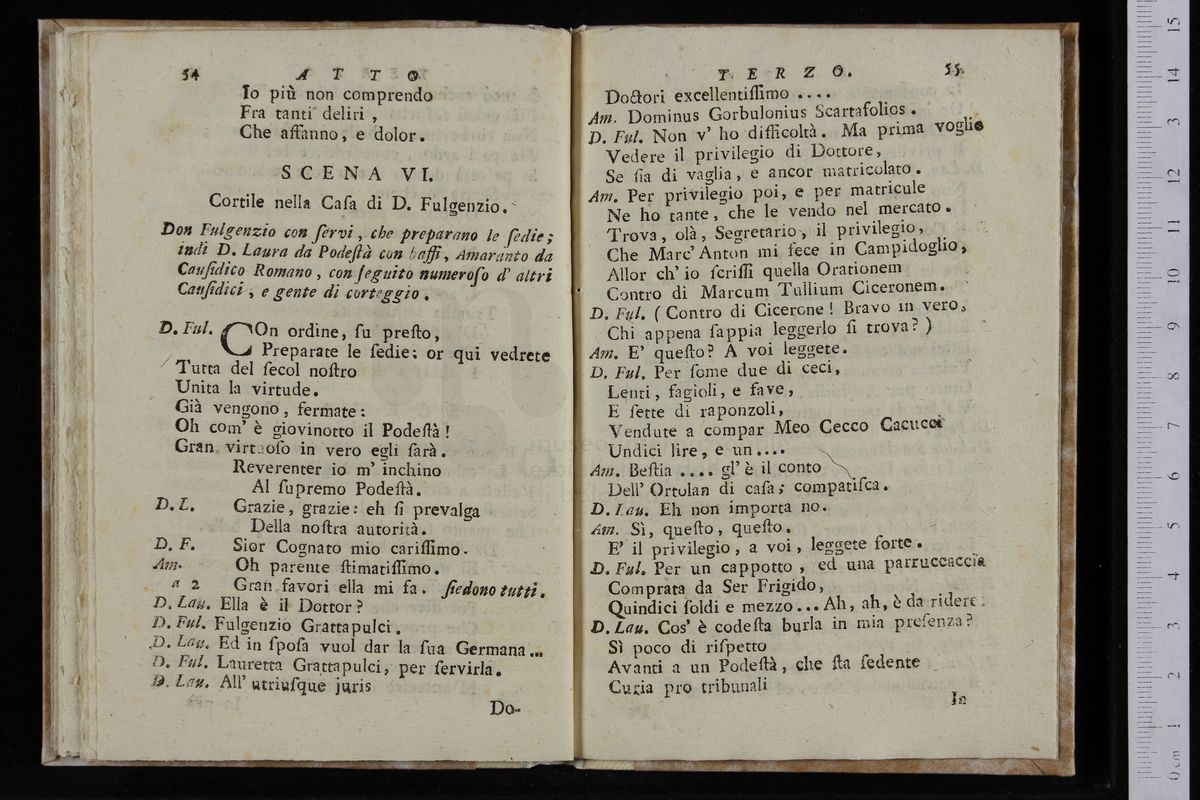 54 A T T O
Io più non comprendo
Fra tanti deliri ,
Che affanno, e dolor.
SCENA VI.
Cortile nella Caſa di D. Fulgenzio.
Don Fulgenzio con ſervi, che preparano le ſedie;
indi D. Laura da Podeſtà con baffi, Amaranto da
Cauſidico Romano , con ſeguito numeroſo d' altri
Cauſidici , e gente di corteggio .
D. Ful. COn ordine, ſu preſto,
Preparate le ſedie; or qui vedrete
Tutta del ſecol noſtro
Unita la virtude.
Già vengono , fermate:
Oh com' è giovinotto il Podeſtà !
Gran virtuoſo in vero egli ſarà.
Reverenter io m' inchino
Al ſupremo Podeſtà.
D. L. Grazie, grazie: eh ſi prevalga
Della noſtra autorità.
D. F. Sior Cognato mio cariſſimo.
Am. Oh parente ſtimatiſſimo.
a 2 Gran favori ella mi fa. ſiedono tutti.
D. Lau. Ella è il Dottor ?
D. Ful. Fulgenzio Grattapulci .
D. Lau. Ed in ſpoſa vuol dar la ſua Germana...
D. Ful. Lauretta Grattapulci, per ſervirla.
D. Lau. All' utriuſque juris
Do-
T E R Z O. 55
Doctori excellentiſſimo ....
Am. Dominus Gorbulonius Scartafolios .
D. Ful. Non v' ho difficoltà. Ma prima voglio
Vedere il privilegio di Dottore,
Se ſia di vaglia, e ancor matricolato.
Am. Per privilegio poi, e per matricule
Ne ho tante, che le vendo nel mercato.
Trova, olà, Segretario, il privilegio,
Che Marc' Anton mi fece in Campidoglio,
Allor ch' io ſcriſſi quella Orationem
Contro di Marcum Tullium Ciceronem.
D. Ful. ( Contro di Cicerone ! Bravo in vero,
Chi appena ſappia leggerlo ſi trova? )
Am. E' queſto? A voi leggete.
D. Ful. Per ſome due di ceci,
Lenti, fagioli, e fave,
E ſette di raponzoli,
Vendute a compar Meo Cecco Cacucci
Undici lire, e un....
Am. Beſtia .... gl' è il conto
Dell' Ortolan di caſa; compatiſca.
D. Lau. Eh non importa no.
Am. Sì, queſto, queſto.
E' il privilegio, a voi, leggete forte.
D. Ful. Per un cappotto , ed una parruccaccia
Comprata da Ser Frigido,
Quindici ſoldi e mezzo... Ah, ah, è da ridere.
D. Lau. Cos' è codeſta burla in mia preſenza?
Sì poco di riſpetto
Avanti a un Podeſtà, che ſta ſedente
Curia pro tribunali
In